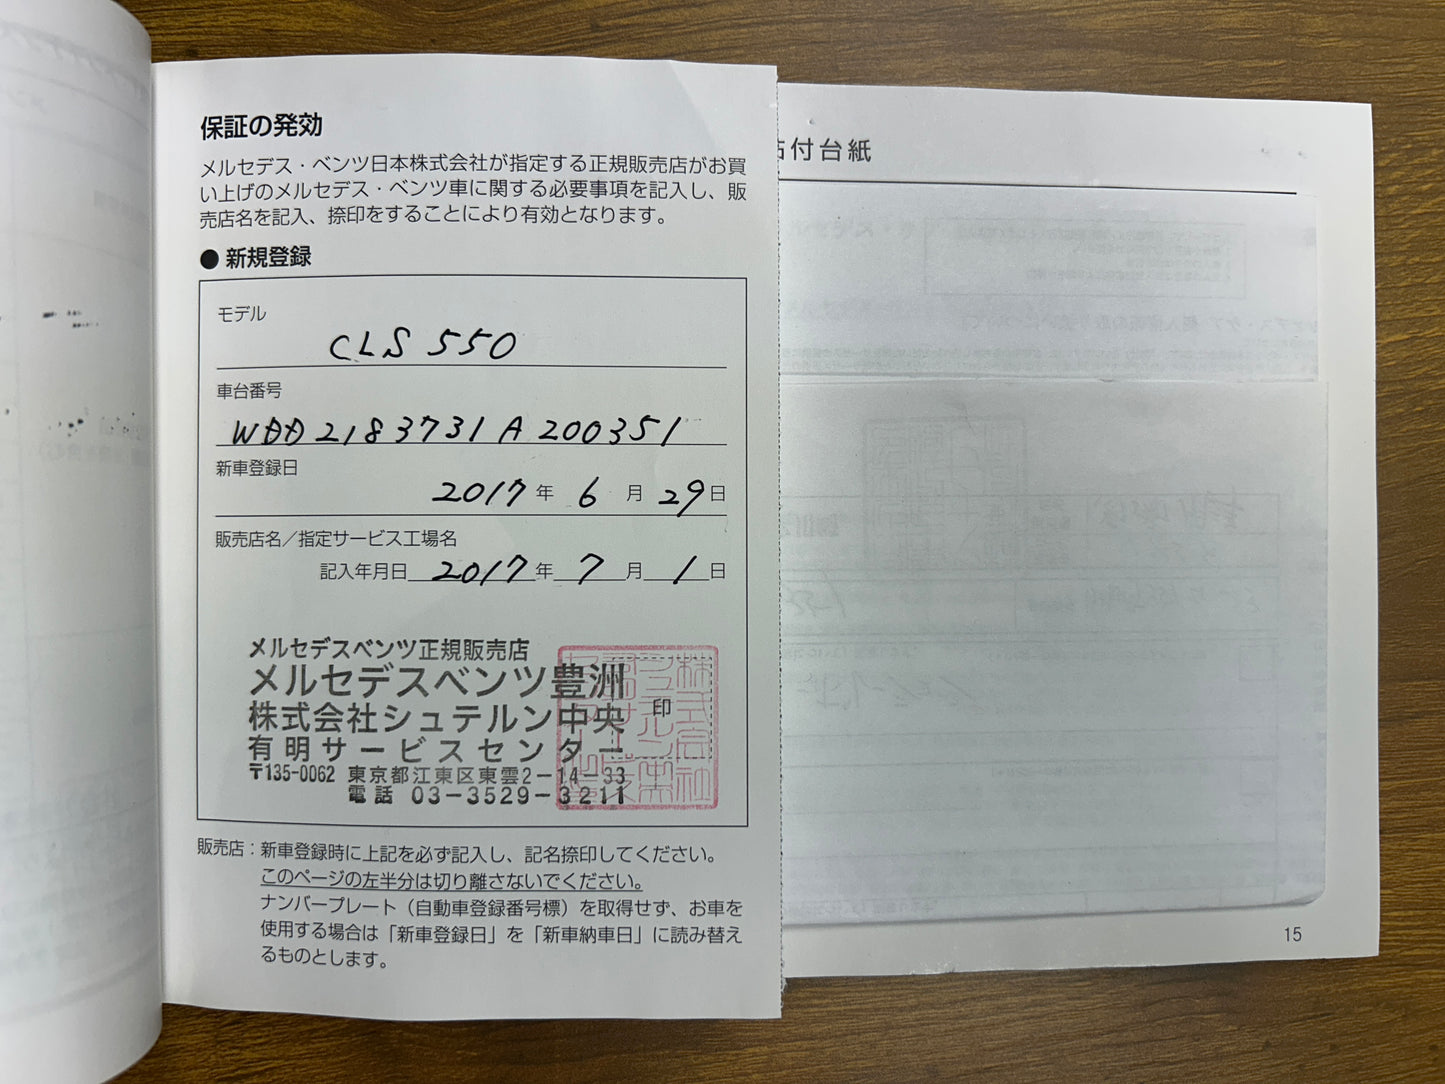 保証の発効
メルセデス・ベンツ日本株式会社が指定する正規販売店がお買
い上げのメルセデス・ベンツ車に関する必要事項を記入し、販
売店名を記入、捺印をすることにより有効となります。
● 新規登録
モデル
CLS 550
車台番号
WDD2183731A200351
新車登録日
2017 年 6 月 29 日
販売店名／指定サービス工場名
記入年月日 2017 年 7 月 1 日
メルセデスベンツ正規販売店
メルセデスベンツ豊洲
株式会社シュテルン中央
有明サービスセンター
〒135-0062 東京都江東区東雲2-14-33
電話 03-3529-3211
印
販売店：新車登録時に上記を必ず記入し、記名捺印してください。
このページの左半分は切り離さないでください。
ナンバープレート（自動車登録番号標）を取得せず、お車を
使用する場合は「新車登録日」を「新車納車日」に読み替え
るものとします。
付台紙
15